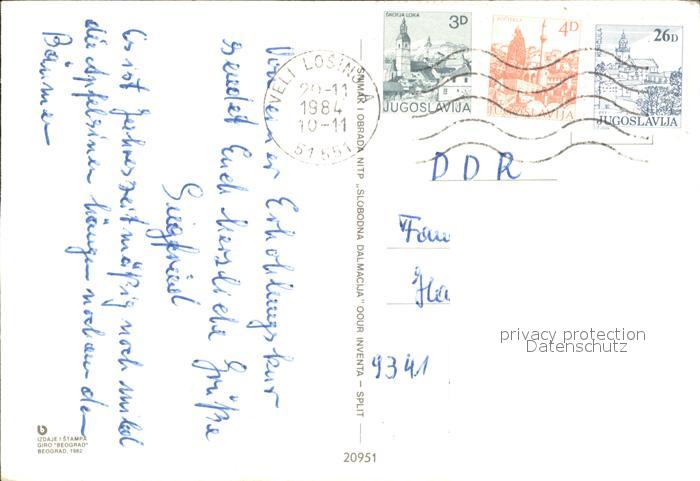 Von meiner Erholungskur
sendet Euch herzliche Grüße
Siegfried
Es ist Jahreszeitmäßig noch mild
die Apfelsinen hängen noch an den
Bäumen
IZDAJE I ŠTAMPA
GIRO "BEOGRAD"
BEOGRAD, 1982
SNIMAK I OBRADA NITP „SLOBODNA DALMACIJA" OOUR INVENTA – SPLIT
20951
VELI LOŠINJ
20-11
1984
10-11
51551
ŠKOFJA LOKA
3D
JUGOSLAVIJA
POČITELJ
4D
JUGOSLAVIJA
26D
JUGOSLAVIJA
DDR
Fam
Ha
9341
privacy protection
Datenschutz